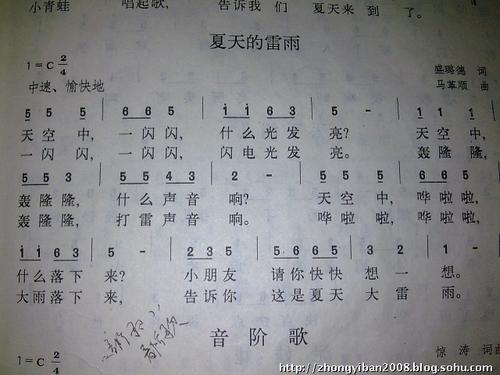 小青蛙 唱起歌， 告诉我们 夏天来到了。
夏天的雷雨
1=C 2/4
盛璐德 词
中速、愉快地
马革顺 曲
5 5 5 | 6 6 5 | i i 6 3 | 5 - | i i i |
天空中， 一闪闪， 什么光发 亮？ 天空中，
一闪闪， 一闪闪， 闪电光发 亮。 轰隆隆，
5 5 3 | 5 5 4 3 | 2 - | 5 5 5 | 6 6 6 |
轰隆隆， 什么声音 响？ 天空中， 哗啦啦，
轰隆隆， 打雷声音 响。 哗啦啦， 哗啦啦，
i i 6 3 | 5 - | 2 3 5 | 5 6 6 5 | 3 2 | 1 - |
什么落下 来？ 小朋友 请你快快 想一 想。
大雨落下 来， 告诉你 这是夏天 大雷 雨。
音阶歌
1=C 2/4
惊涛 词曲
http://zhongyiban2008.blog.sohu.com